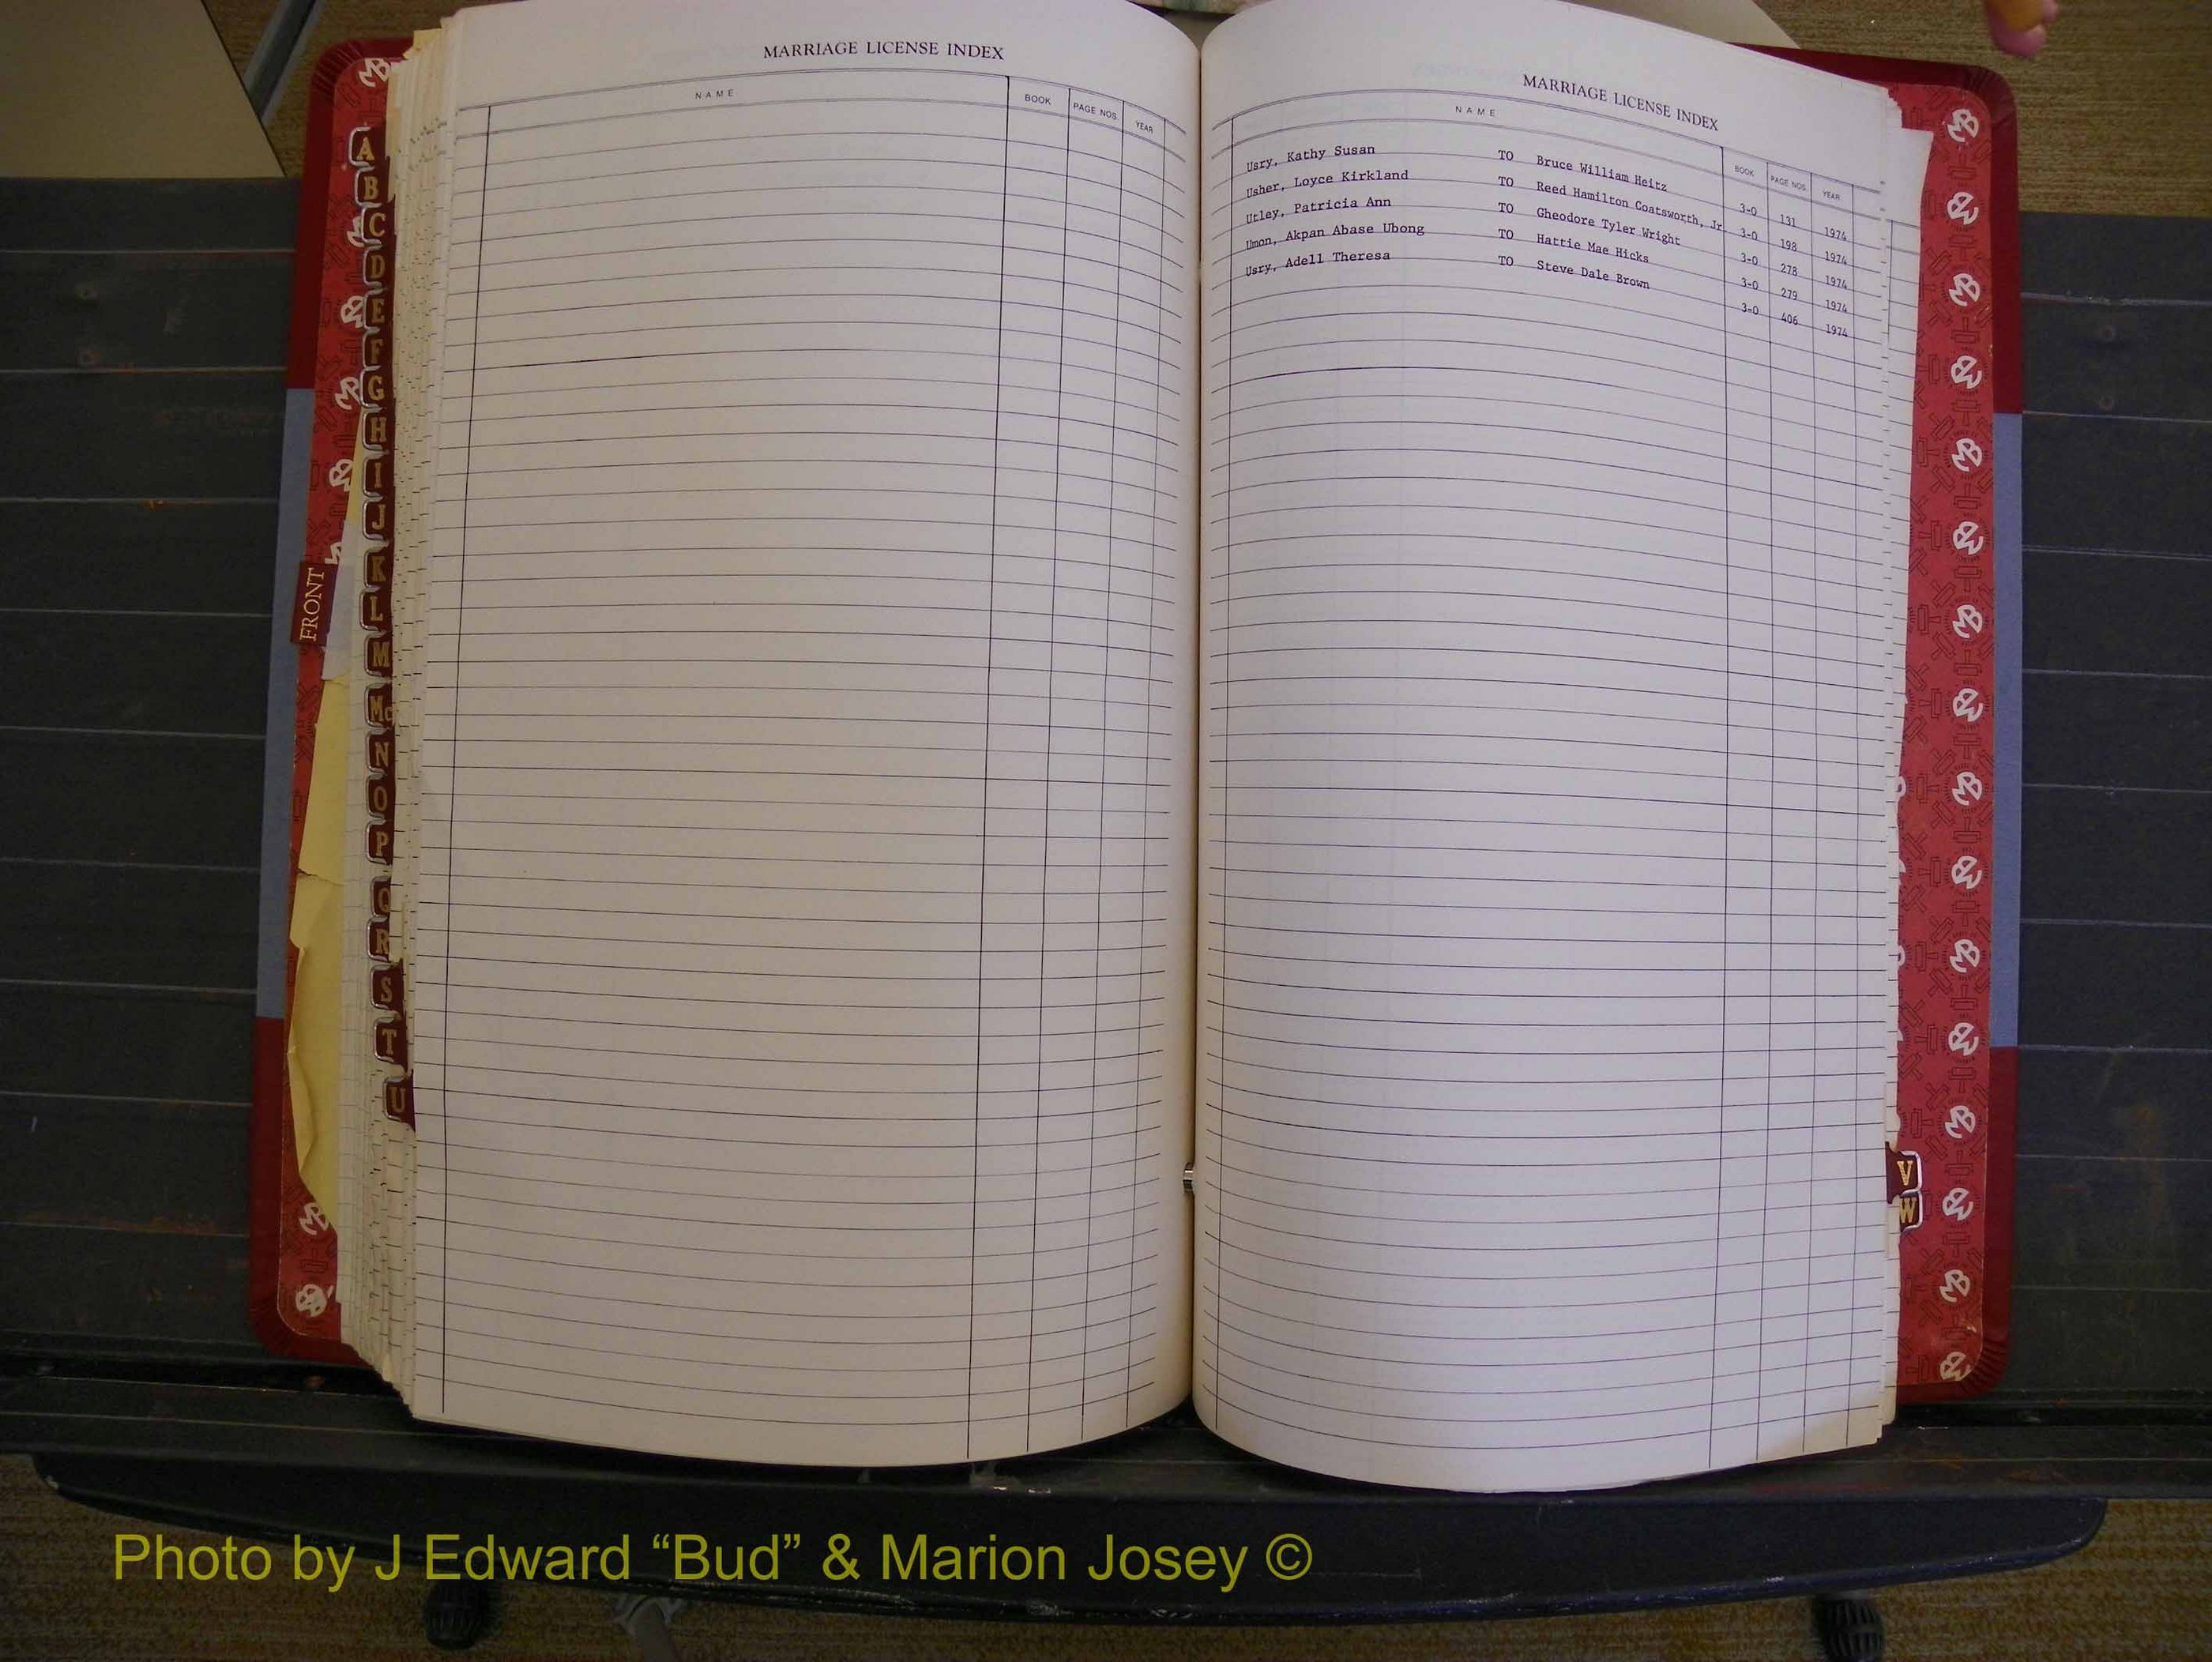 MARRIAGE LICENSE INDEX
NAME BOOK PAGE NOS. YEAR
MARRIAGE LICENSE INDEX
NAME BOOK PAGE NOS. YEAR
Usry, Kathy Susan TO Bruce William Heitz 3-0 131 1974
Usher, Loyce Kirkland TO Reed Hamilton Coatsworth, Jr 3-0 198 1974
Utley, Patricia Ann TO Gheodore Tyler Wright 3-0 278 1974
Umon, Akpan Abase Ubong TO Hattie Mae Hicks 3-0 279 1974
Usry, Adell Theresa TO Steve Dale Brown 3-0 406 1974
A
B
C
D
E
F
G
H
I
J
K
L
M
Mc
N
O
P
Q
R
S
T
U
FRONT
V
W
Photo by J Edward “Bud” & Marion Josey ©